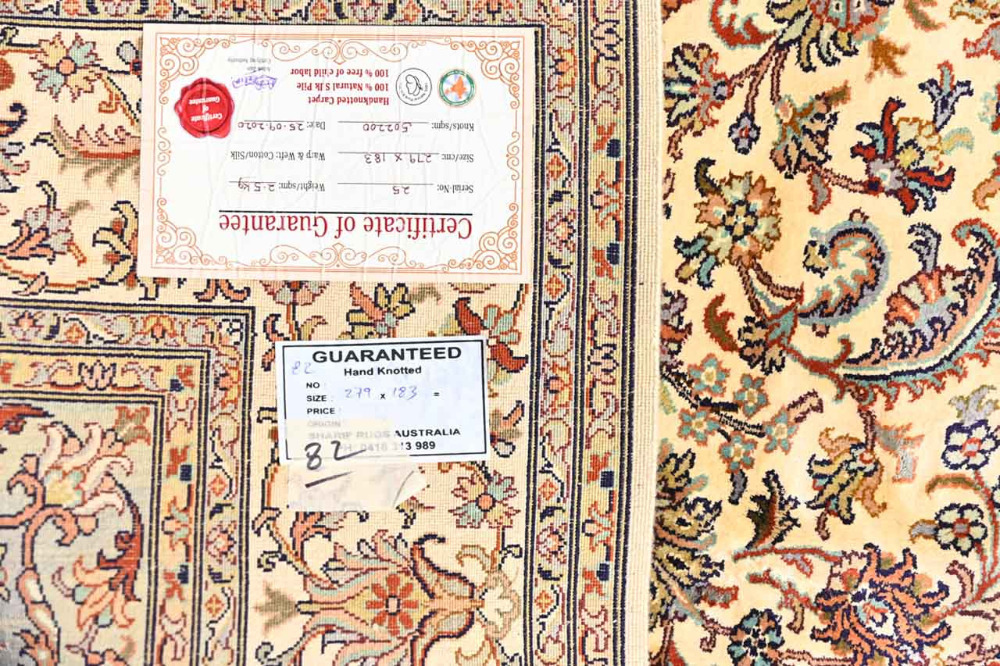 Certificate of Guarantee
Serial-No: 25 Weight/sqm: 2.5 kg
Size/cm: 279 x 183 Warp & Weft: Cotton/Silk
Knots/sqm: 502200 Date: 25-09-2020
Handknotted Carpet
100 % Natural Silk Pile
100 % free of child labor
Certificate
of
Guarantee
82
GUARANTEED
Hand Knotted
NO
SIZE: 279 x 183 =
PRICE:
ORIGIN
SHARIF RUGS AUSTRALIA
82